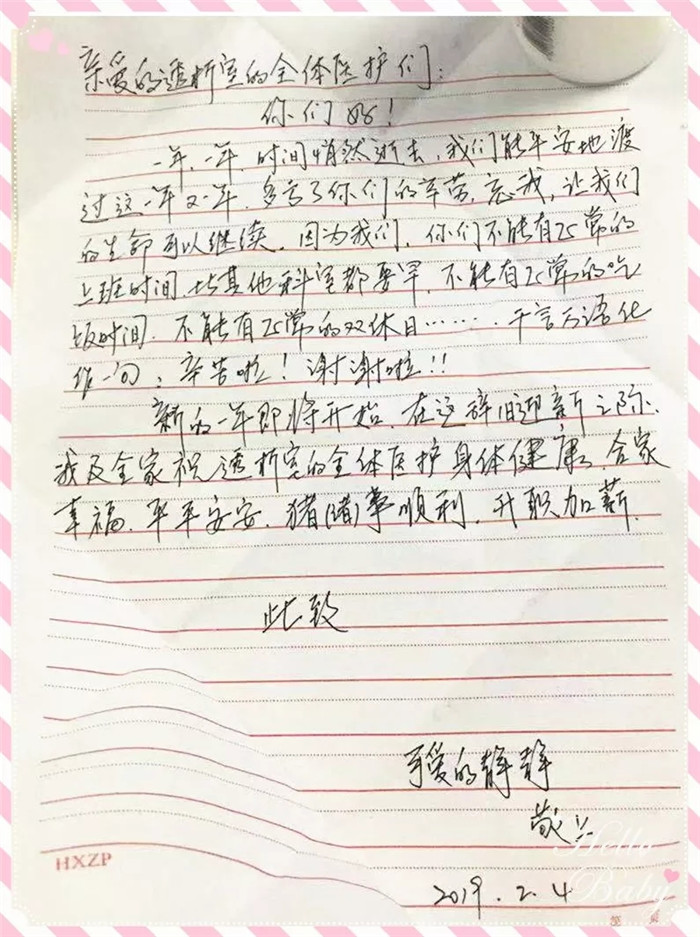 亲爱的透析室的全体医护们：
你们好！
一年，一年，时间悄然逝去，我们能平安地渡
过这一年又一年，多亏了你们的辛劳，忘我，让我们
的生命可以继续。因为我们，你们不能有正常的
上班时间，比其他科室都要早，不能有正常的吃
饭时间，不能有正常的双休日……，千言万语化
作一句：辛苦啦！谢谢啦！！
新的一年即将开始，在这辞旧迎新之际，
我及全家祝透析室的全体医护身体健康，合家
幸福，平平安安，猪(诸)事顺利，升职加薪。
此致
可爱的静静
敬上
2019.2.4
HXZP
Hello
Baby
第 页